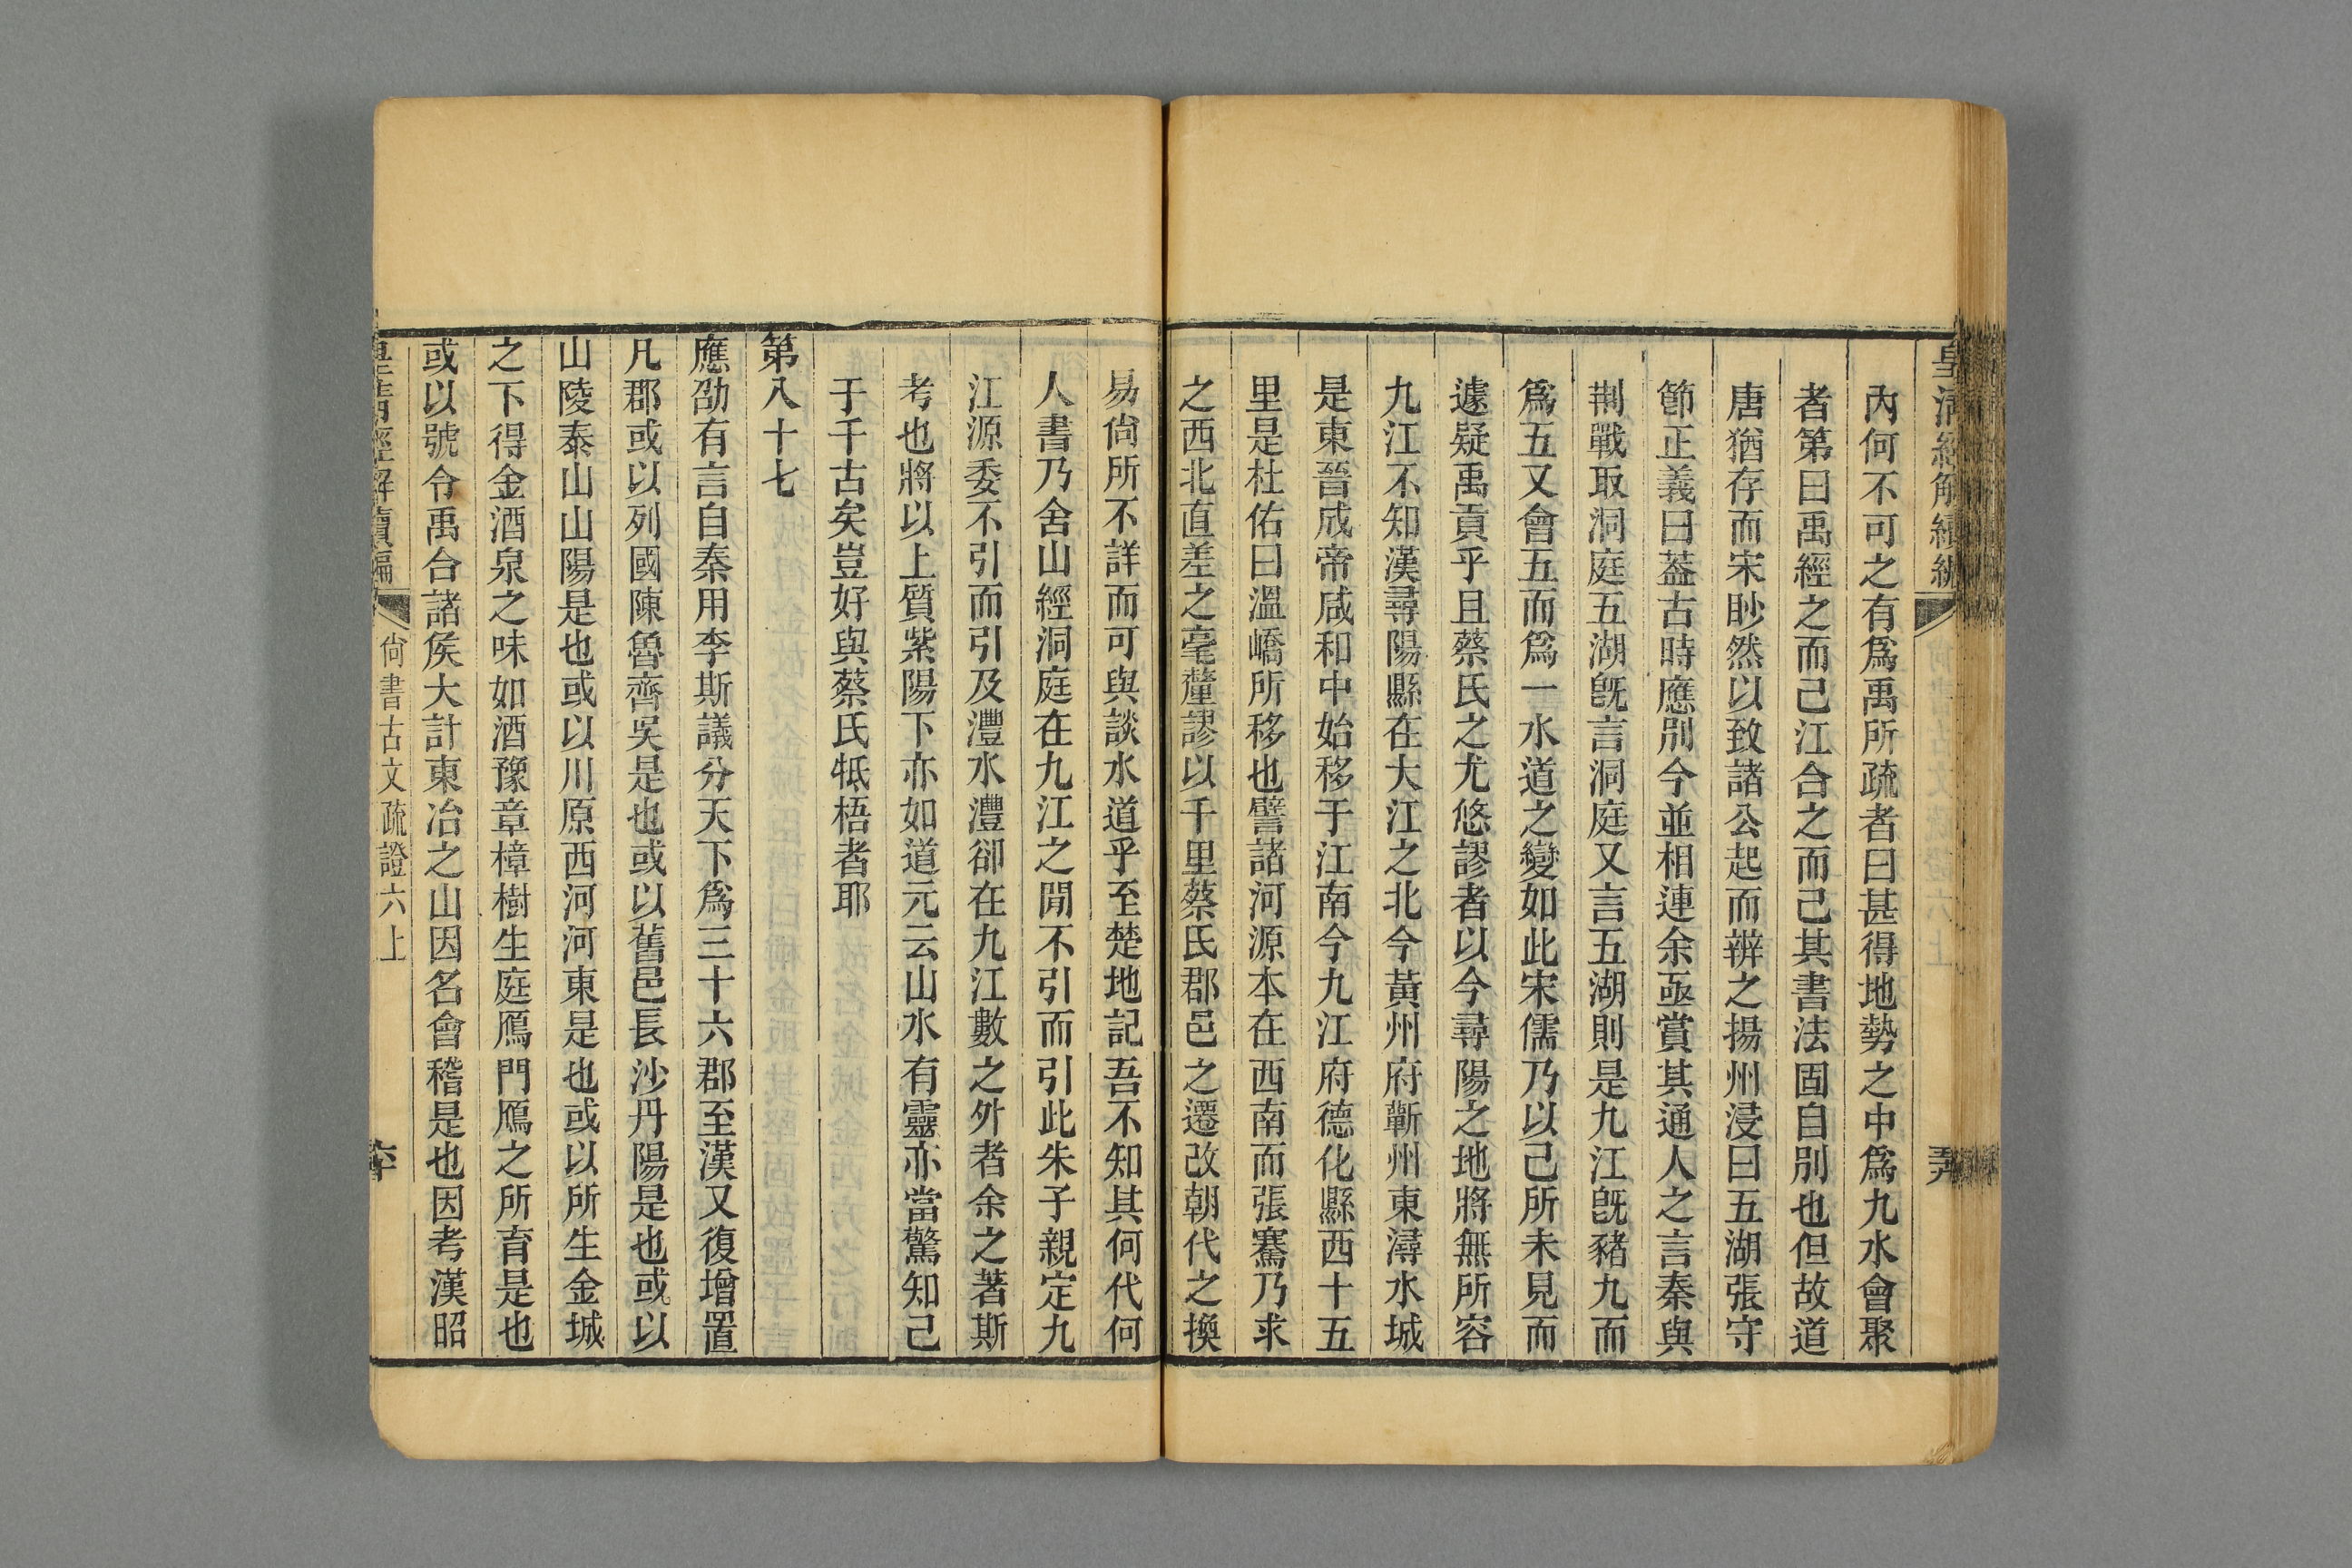 皇清經解續編
內何不可之有爲禹所疏者曰甚得地勢之中爲九水會聚
者第曰禹經之而己江合之而己其書法固自別也但故道
唐猶存而宋眇然以致諸公起而辨之揚州浸曰五湖張守
節正義曰葢古時應別今並相連余亟賞其通人之言秦與
荆戰取洞庭五湖旣言洞庭又言五湖則是九江旣豬九而
爲五又會五而爲一水道之變如此宋儒乃以己所未見而
遽疑禹貢乎且蔡氏之尤悠謬者以今尋陽之地將無所容
九江不知漢尋陽縣在大江之北今黃州府蘄州東潯水城
是東晉成帝咸和中始移于江南今九江府德化縣西十五
里是杜佑曰溫嶠所移也譬諸河源本在西南而張騫乃求
之西北直差之毫釐謬以千里蔡氏郡邑之遷改朝代之換
易尙所不詳而可與談水道乎至楚地記吾不知其何代何
人書乃舍山經洞庭在九江之閒不引而引此朱子親定九
江源委不引而引及灃水灃卻在九江數之外者余之著斯
考也將以上質紫陽下亦如道元云山水有靈亦當驚知己
于千古矣豈好與蔡氏牴梧者耶
第八十七
應劭有言自秦用李斯議分天下爲三十六郡至漢又復增置
凡郡或以列國陳魯齊吳是也或以舊邑長沙丹陽是也或以
山陵泰山山陽是也或以川原西河河東是也或以所生金城
之下得金酒泉之味如酒豫章樟樹生庭鴈門鴈之所育是也
或以號令禹合諸侯大計東冶之山因名會稽是也因考漢昭
皇清經解續編
尙書古文疏證六上
六十